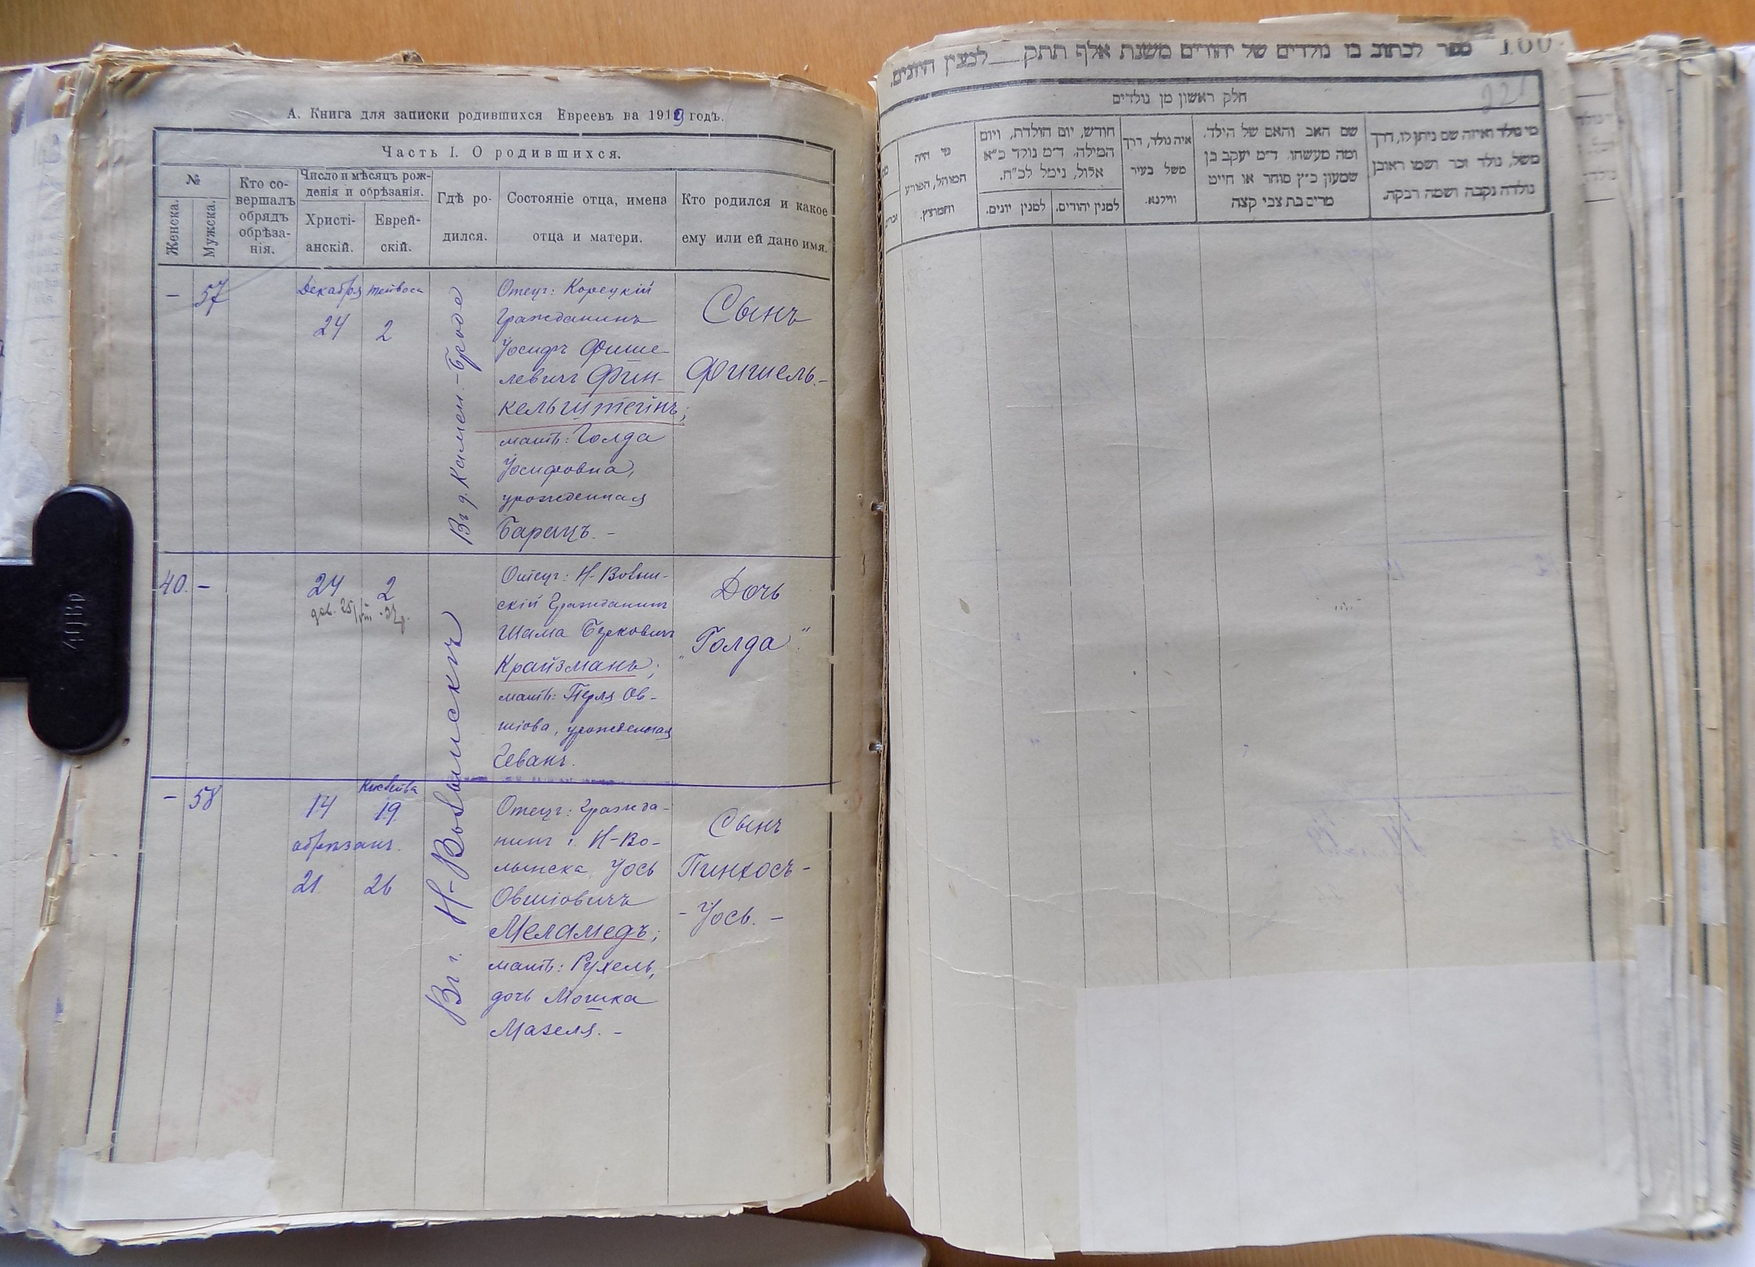 А. Книга для записки родившихся Евреевъ на 1919 годъ.
Часть I. О родившихся.
№
Женска.
Мужска.
Кто со-
вершалъ
обрядъ
обрѣза-
нія.
Число и мѣсяцъ рож-
денія и обрѣзанія.
Христі-
анскій.
Еврей-
скій.
Гдѣ ро-
дился.
Состояніе отца, имена
отца и матери.
Кто родился и какое
ему или ей дано имя.
– 57
Декабря
24
Тейвеса
2
Въ д. Камен.-Брода
Отецъ: Корецкій
Гражданинъ
Іосифъ Фише-
левичъ Фин-
кельштейнъ;
мать: Голда
Іосифовна,
урожденная
Барацъ. –
Сынъ
Фишель. –
40. –
24 2
Отецъ: Н-Волын-
скій Гражданинъ
Шама Берковичъ
Крайзманъ;
мать: Перля Ов-
шіова, урожденная
Геванъ.
Дочь
„Голда“.
Въ г. Н-Волынскъ
– 58
Кислева
14 19
обрѣзанъ.
21 26
Отецъ: Гражда-
нинъ г. Н-Во-
лынска, Іось
Овшіовичъ
Меламедъ;
мать: Рухель,
дочь Мошка
Мазеля. –
Сынъ
Пинхось –
- Іось. –
160
ספר לכתוב בו נולדים של יהודים משנת אלף תתק__ למנין היונים.
חלק ראשון מן נולדים
מי נולד ואיזה שם ניתן לו, דרך
משל, נולד זכר ושמו ראובן
נולדה נקבה ושמה רבקה.
שם האב והאם של הילד.
ומה מעשהו. ד״מ יעקב בן
שמעון כ״ץ סוחר או חייט
מרים בת צבי קצה
איה נולד, דרך
משל בעיר
ווילנא.
חודש, יום הולדת, ויום
המילה. ד״מ נולד כ״א
אלול, נימל לכ״ח.
למנין יהודים.
למנין יונים.
מי היה
המוהל, הפורע
והמוצץ.